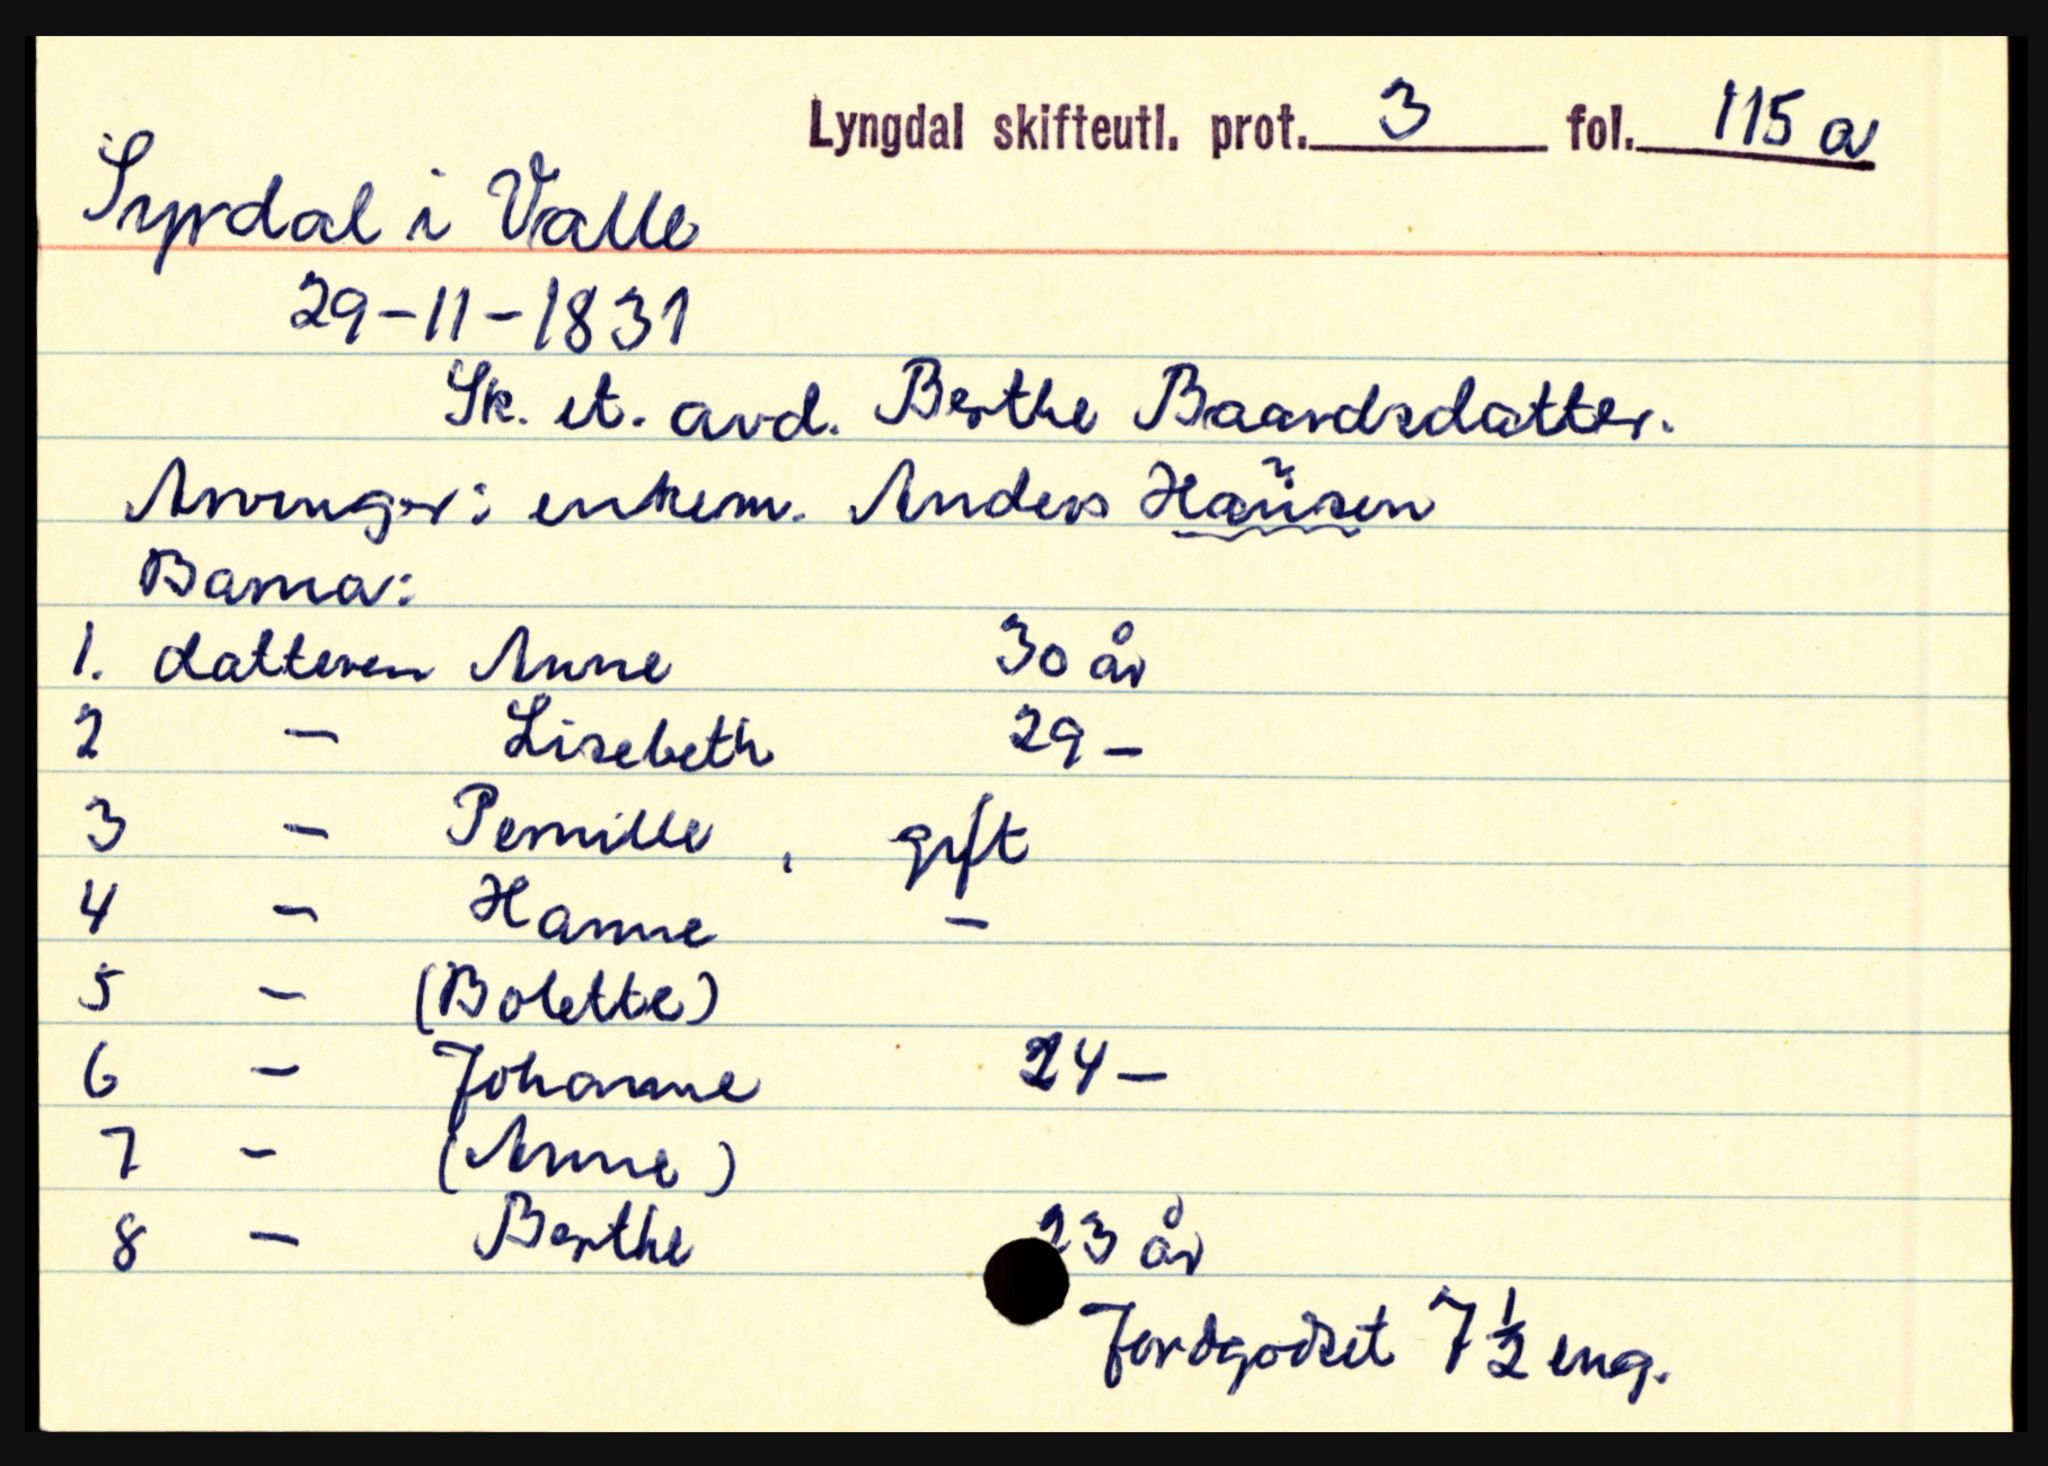 Lyngdal skifteutl. prot. 3 fol. 115 a
Syrdal i Valle
29-11-1831
Sk. et. avd. Berthe Baardsdatter.
Arvinger: enkem. Anders Haüsen
Barna:
1. datteren Anne 30 år
2 - Lisebeth 29 -
3 - Pernille, gift
4 - Hanne -
5 - (Bolette)
6 - Johanne 24 -
7 - (Anne)
8 - Berthe 23 år
Jordgodset 7 ½ eng.